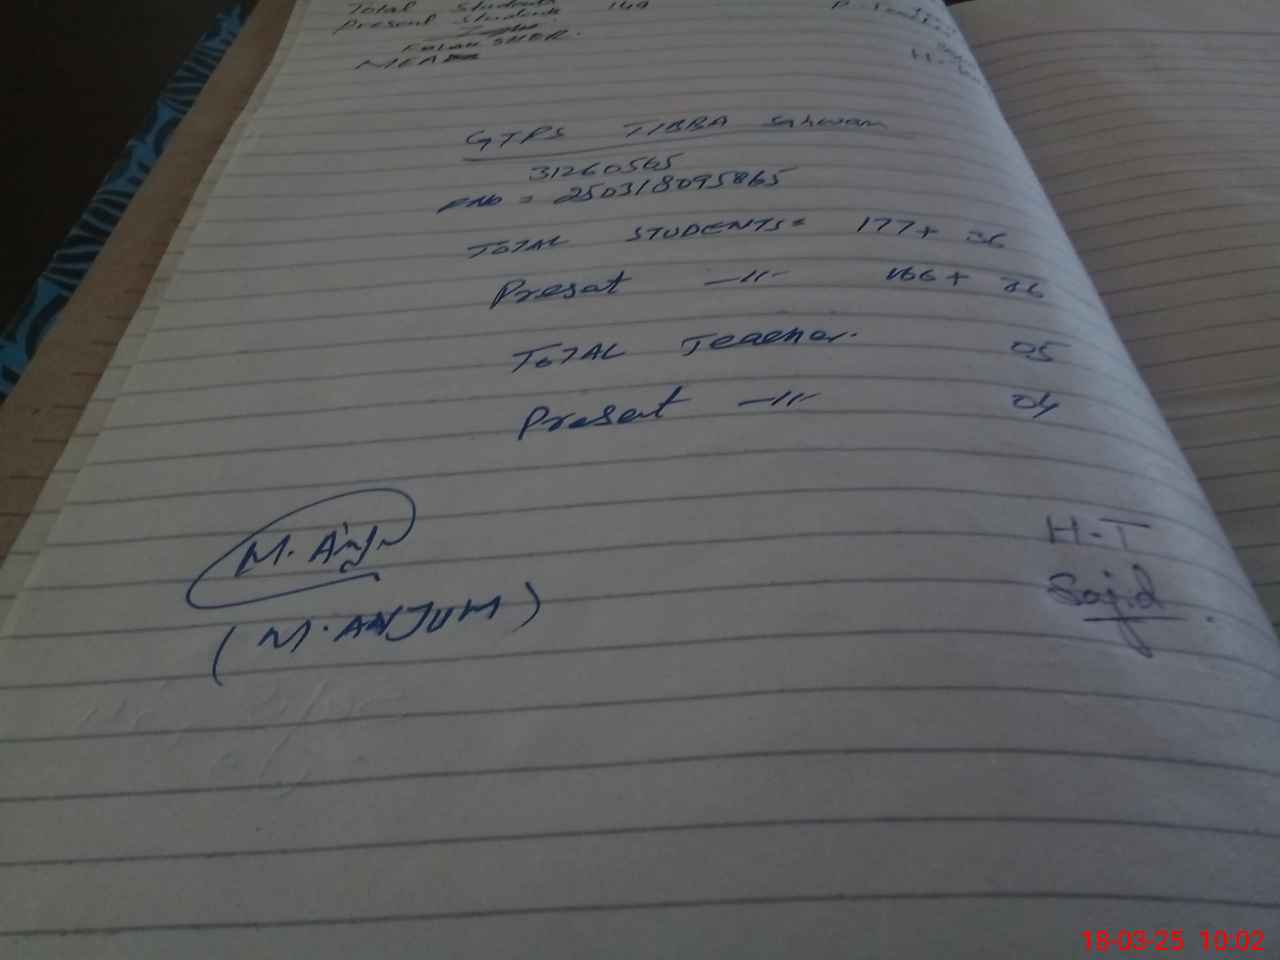 Total Students 149
Present Students
FALAK SHER.
MEA
H-
GTPS TIBBA Sahwan
31260565
PNO = 250318095865
TOTAL STUDENTS = 177+ 36
Present -//- 166+ 36
TOTAL Teacher. 05
Present -//- 04
M. Anju
H-T
(M. ANJUM)
Sajid
18-03-25 10:02